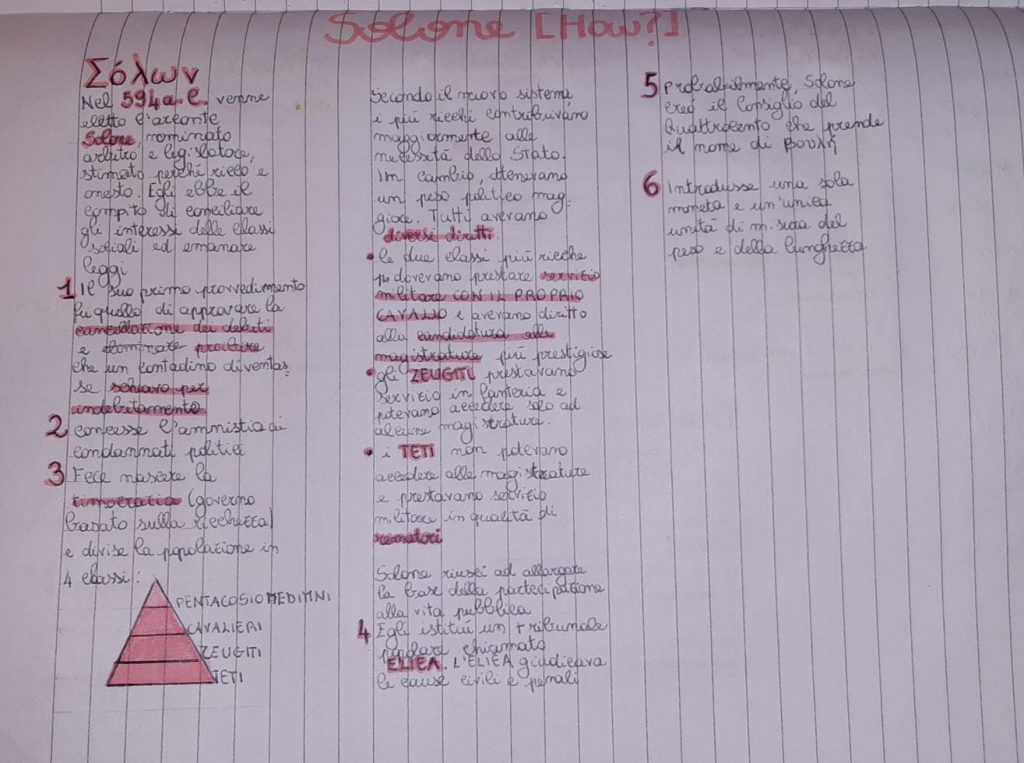 Solone [How?]
Σόλων
Nel 594 a.C. venne
eletto l'arconte
Solone, nominato
arbitro e legislatore,
stimato perché ricco e
onesto. Egli ebbe il
compito di conciliare
gli interessi delle classi
sociali ed emanare
leggi
1 Il suo primo provvedimento
fu quello di approvare la
cancellazione dei debiti
e eliminare proibire
che un contadino diventas-
se schiavo per
indebitamento
2 concesse l'amnistia ai
condannati politici
3 Fece nascere la
timocrazia (governo
basato sulla ricchezza)
e divise la popolazione in
4 classi:
PENTACOSIOMEDIMNI
CAVALIERI
ZEUGITI
TETI
Secondo il nuovo sistema,
i più ricchi contribuivano
maggiormente alle
necessità dello Stato.
In cambio, ottenevano
un peso politico mag-
giore. Tutti avevano
diversi diritti:
• le due classi più ricche
dovevano prestare servizio
militare CON IL PROPRIO
CAVALLO e avevano diritto
alla candidatura alle
magistrature più prestigiose
• gli ZEUGITI prestavano
servizio in fanteria e
potevano accedere solo ad
alcune magistrature.
• i TETI non potevano
accedere alle magistrature
e prestavano servizio
militare in qualità di
rematori
Solone riuscì ad allargare
la base della partecipazione
alla vita pubblica
4 Egli istituì un tribunale
popolare chiamato
ELIEA. L'ELIEA giudicava
le cause civili e penali
5 Probabilmente, Solone
creò il Consiglio dei
Quattrocento che prende
il nome di βουλή
6 Introdusse una sola
moneta e un'unica
unità di misura del
peso e della lunghezza